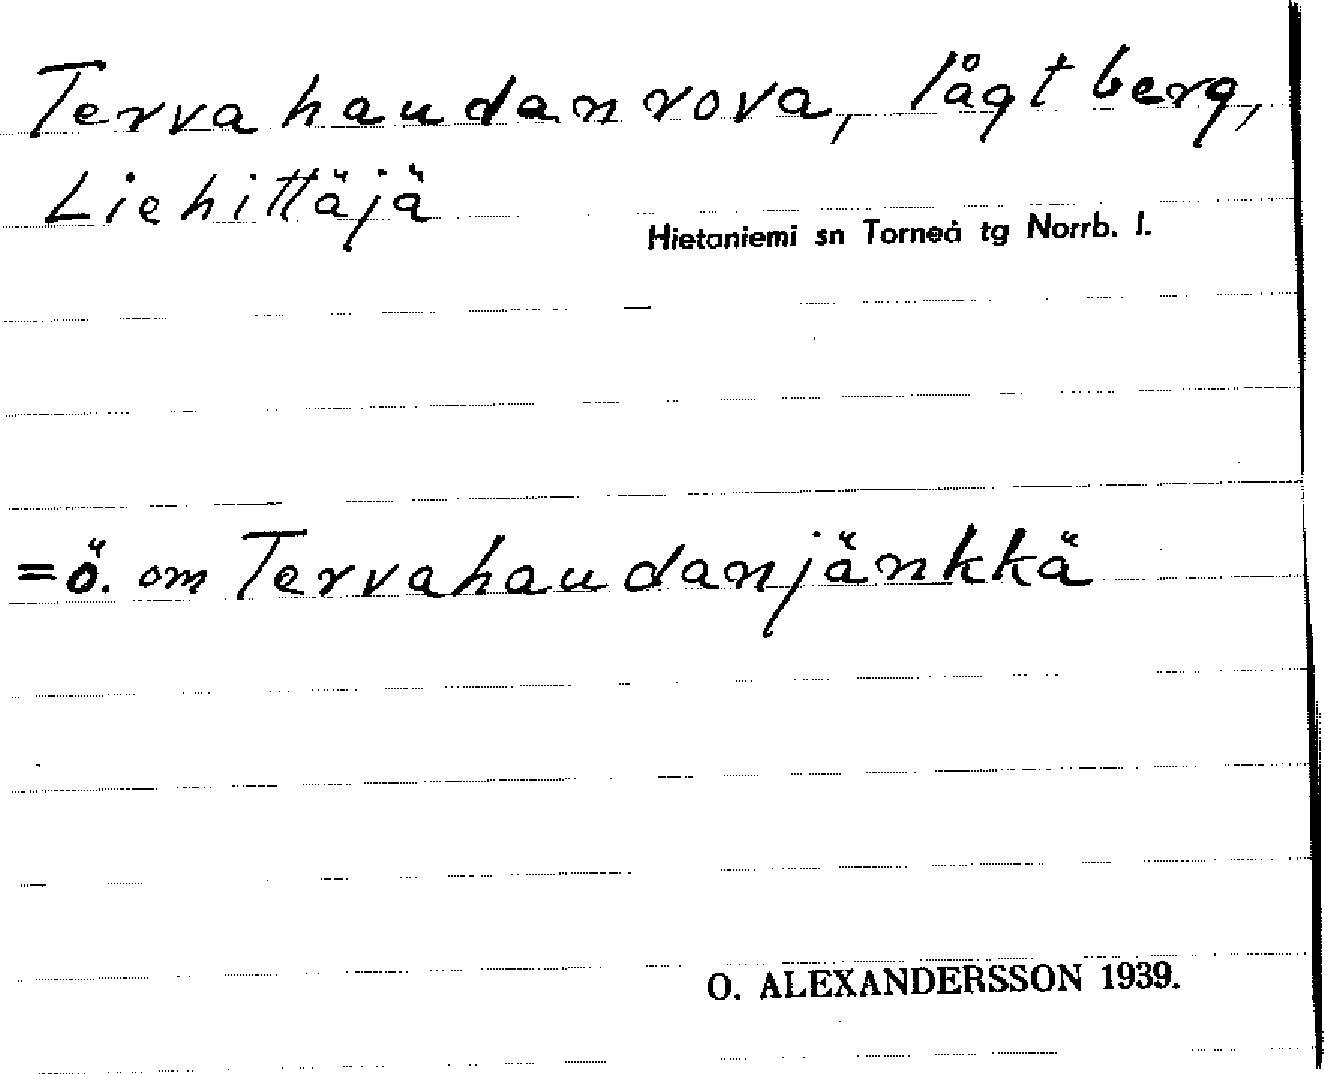 Tervahaudanrova, lågt berg,
Liehittäjä
Hietaniemi sn Torneå tg Norrb. l.
=ö. om Tervahaudanjänkkä
O. ALEXANDERSSON 1939.